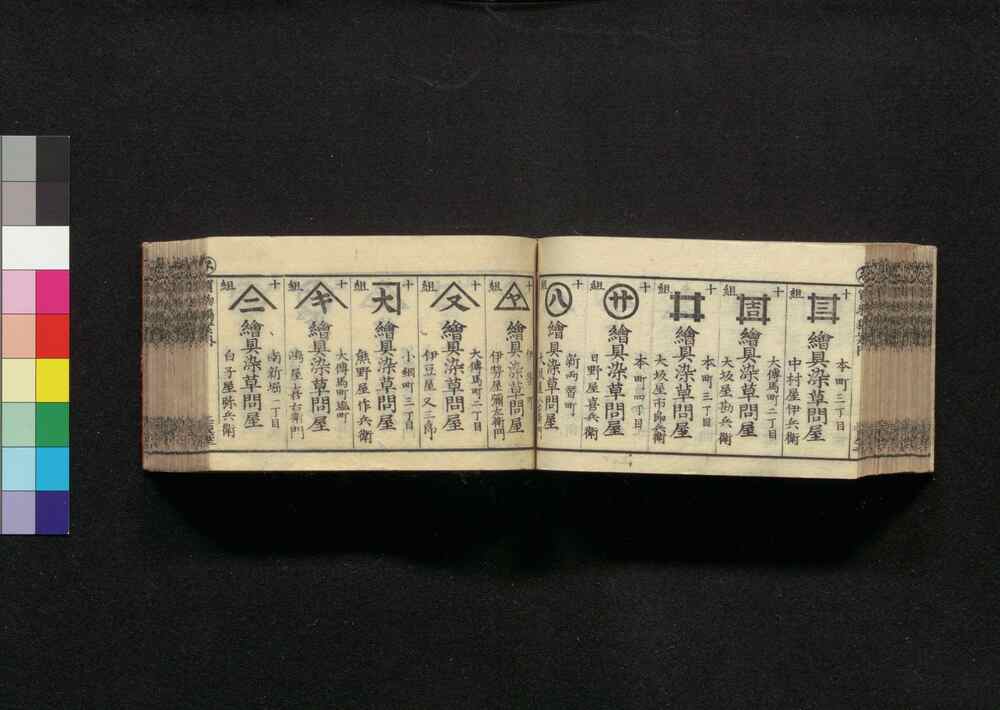 十組
本町二丁目
繪具染草問屋
中村屋伊兵衛
十組
周
大傳馬町二丁目
繪具染草問屋
大坂屋勘兵衛
十組
本町三丁目
繪具染草問屋
大坂屋市郎兵衛
十組
サ
本町四丁目
繪具染草問屋
日野屋喜兵衛
十組
八
新両替町
繪具染草問屋
十組
ヤ
繪具染草問屋
伊勢屋彌左衛門
十組
又
大傳馬町二丁目
繪具染草問屋
伊豆屋又三郎
十組
大
小網町三丁目
繪具染草問屋
熊野屋作兵衛
十組
キ
大傳馬町塩町
繪具染草問屋
鴻屋喜右衛門
十組
二
南新堀一丁目
繪具染草問屋
白子屋弥兵衛